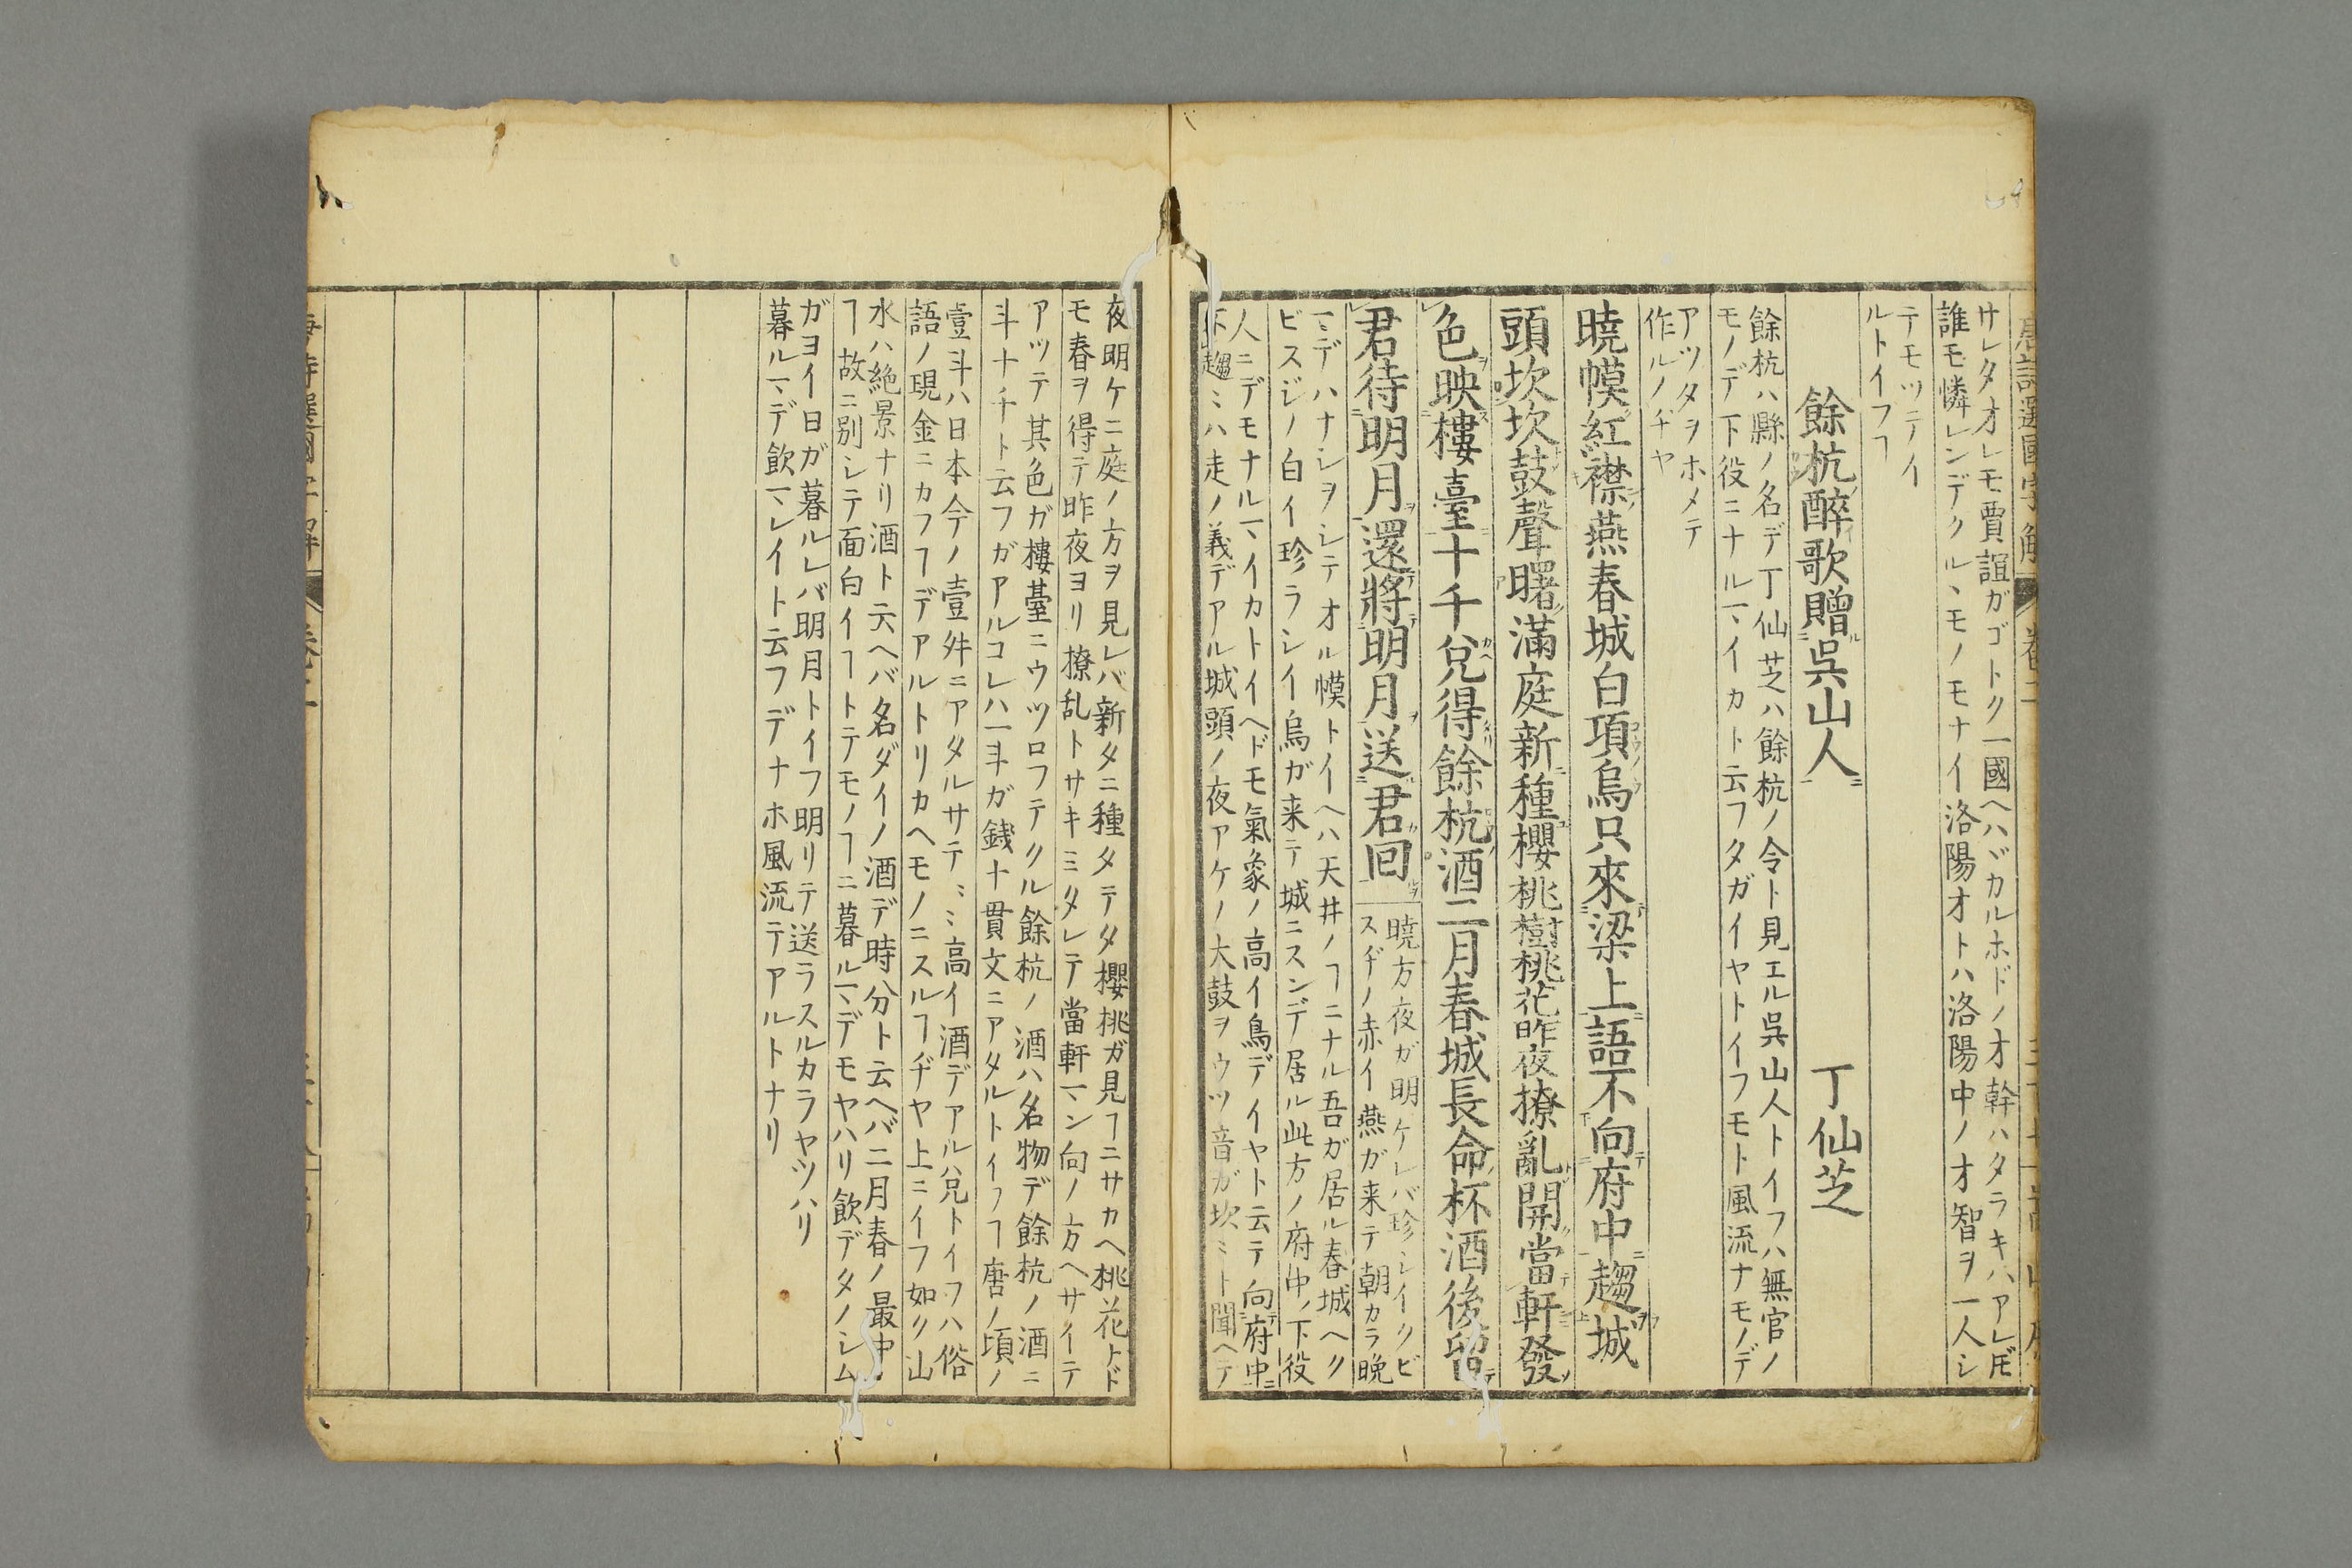 サレタオレモ賈誼ガゴトク一國ヘハヾカルホドノオ幹ハタラキハアレ𪜈
誰モ憐レンデクルヽモノモナイ洛陽オトハ洛陽中ノオ智ヲ一人シ
テモツテイ
ルトイフヿ
餘杭醉歌贈吳山人 丁仙芝
餘杭ハ縣ノ名デ丁仙芝ハ餘杭ノ令ト見エル吳山人トイフハ無官ノ
モノデ下役ニナルマヽイカト云フタガイヤトイフモト風流ナモノデ
アツタヲホメテ
作ルノヂヤ
曉幙紅襟燕春城白項烏只來梁上語不向府中趨城
頭坎坎鼓聲曙滿庭新種櫻桃樹桃花昨夜撩亂開當軒發
色映樓臺十千兌得餘杭酒二月春城長命杯酒後留
君待明月還將明月送君回
曉方夜ガ明ケレバ珍シイクビ
スヂノ赤イ燕ガ来テ朝カラ晩
マヽデハナシヲシテオル幙トイヘハ天井ノヿニナル吾ガ居ル春城ヘク
ビスジノ白イ珍ラシイ烏ガ来テ城ニスンデ居ル此方ノ府中ノ下役
人ニデモナルマヽイカトイヘドモ氣象ノ高イ鳥デイヤト云テ向府中
不趨ミハ走ノ義デアル城頭ノ夜アケノ大鼓ヲウツ音ガ坎ミト聞ヘテ
夜明ケニ庭ノ方ヲ見レバ新タニ種タテタ櫻桃ガ見ヿニサカヘ桃花トド
モ春ヲ得テ昨夜ヨリ撩乱トサキミタレテ當軒マヽン向ノ方ヘサイテ
アツテ其色ガ樓䑓ニウツロフテクル餘杭ノ酒ハ名物デ餘杭ノ酒ニ
斗十千ト云フガアルコレハ一斗ガ銭十貫文ニアタルトイフヿ唐ノ頃ノ
壹斗ハ日本今ノ壹舛ニアタルサテミミ高イ酒デアル兌トイフハ俗
語ノ現金ニカフヿデアルトリカヘモノニスルヿヂヤ上ニイフ如ク山
水ハ絶景ナリ酒ト云ヘバ名ダイノ酒デ時分ト云ヘバ二月春ノ最中
ヿ故ニ別シテ面白イヿトテモノヿニ暮ルマヽデモヤハリ飲デタノシム
ガヨイ日ガ暮ルレバ明月トイフ明リテ送ラスルカラヤツハリ
暮ルマヽデ飲マヽレイト云フデナホ風流テアルトナリ